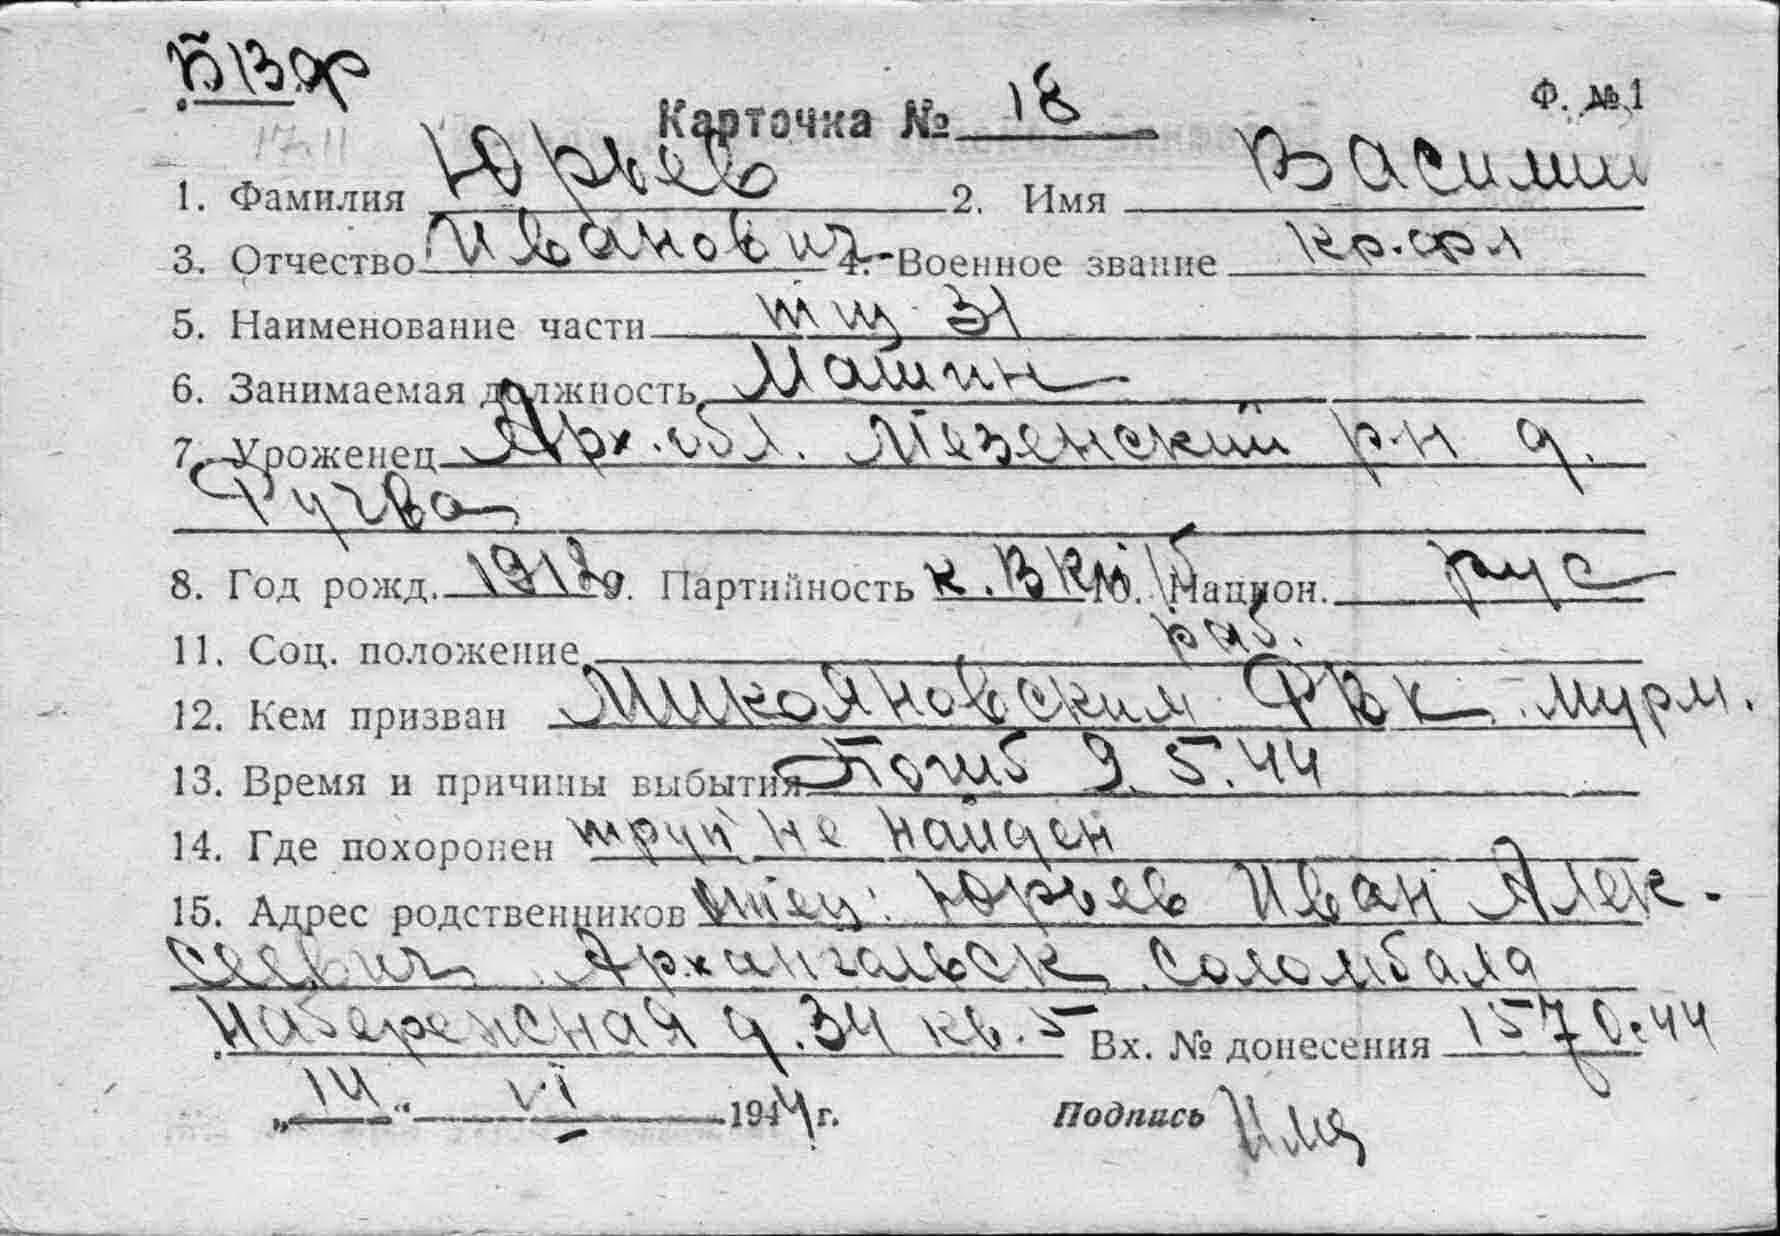 Б 13 ф
Ф. №1
Карточка № 18
17.11
1. Фамилия Юрьев 2. Имя Василий
3. Отчество Иванович 4. Военное звание кр.фл
5. Наименование части тщ 31
6. Занимаемая должность Машин
7. Уроженец Арх.обл. Мезенский р-н д.
Ручва
8. Год рожд. 1912 9. Партийность к. ВКП/б 10. Национ. рус
11. Соц. положение раб.
12. Кем призван Микояновским РВК Мурм.
13. Время и причины выбытия Погиб 9.5.44
14. Где похоронен труп не найден
15. Адрес родственников Отец: Юрьев Иван Алек-
сеевич Архангельск Соломбала
набережная д.34 кв.5 Вх. № донесения 1570с44
„14“ VI 1944 г. Подпись